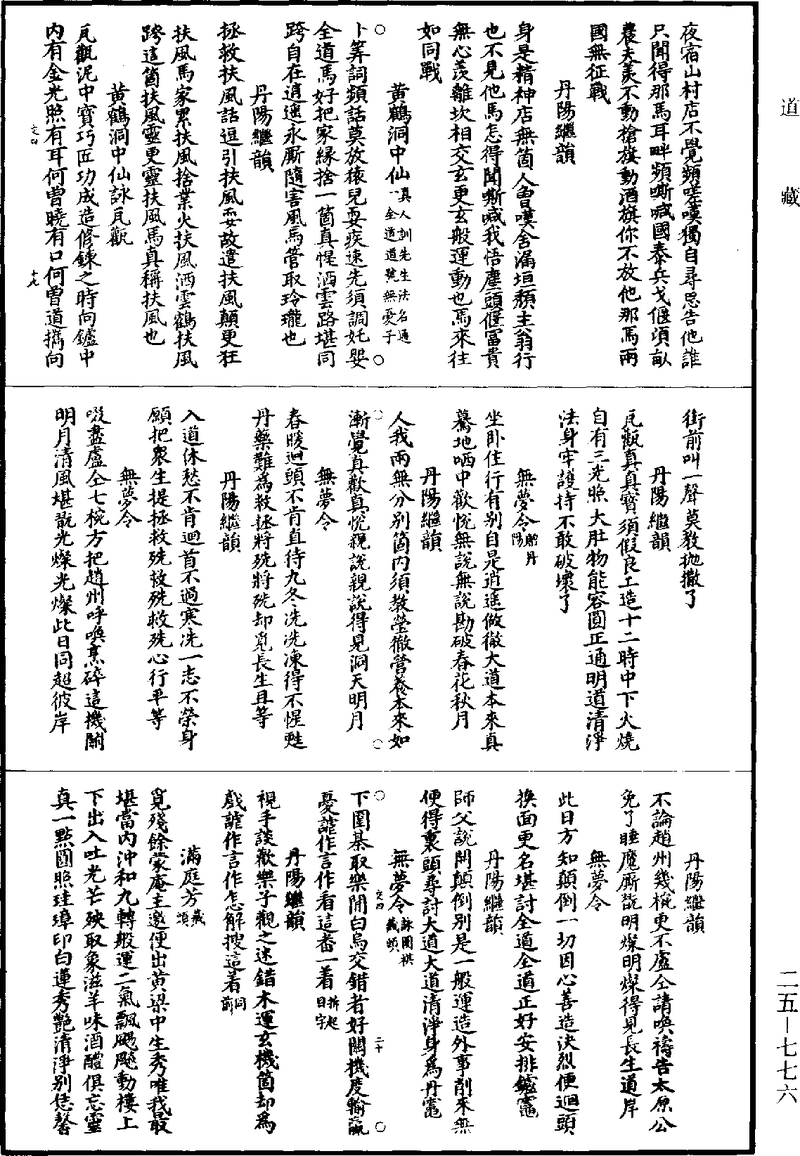 道藏
夜宿山村店不覺頻嗟嘆獨自尋思告他誰
只聞得那馬耳畔頻嘶喊國泰兵戈偃須畝
農夫羨不動槍旗動酒旗你不放他那馬兩
國無征戰
丹陽繼韻
身是精神店無箇人曾嘆舍漏垣頹主翁行
也不見他馬怎得聞嘶喊我悟塵頭偃富貴
無心羨離坎相交玄更玄般運動也馬來往
如同戰
黃鶴洞中仙真人訓先生法名通一全道道號無憂子
卜筭詞頻話莫放猿兒耍疾速先須調奼嬰
全道馬好把家緣捨一箇真惺洒雲路堪同
跨自在逍遙永厮隨害風馬管取玲瓏也
丹陽繼韻
拯救扶風話逗引扶風耍故遣扶風顛更狂
扶風馬家累扶風捨業火扶風洒雲鶴扶風
跨這箇扶風靈更靈扶風馬真稱扶風也
黃鶴洞中仙詠瓦觀
瓦觀泥中寶巧匠功成造修鍊之時向鑪中
內有金光照有耳何曾曉有口何曾道擕向
文四
十九
街前叫一聲莫教拋撒了
丹陽繼韻
瓦觀真真寶須假良工造十二時中下火燒
自有三光照大肚物能容圓正通明道清淨
法身牢護持不敢破壞了
無夢令贈丹陽
坐卧住行有別自是逍遙做徹大道本來真
驀地哂中歡恱無說無說勘破春花秋月
丹陽繼韻
人我兩無分別箇內須教瑩徹營養本來如
漸覺真歡真恱親說親說得見洞天明月
無夢令
春暖迴頭不肯直待九冬冼冼凍得不惺甦
丹藥難為救拯將殑將殑却覓長生且等
丹陽繼韻
入道休愁不肯迴首不過寒冼一志不榮身
願把衆生提拯救殑救殑救殑心行平等
無夢令
啜盡盧仝七椀方把趙州呼喚烹碎這機關
明月清風堪翫光燦光燦此日同超彼岸
丹陽繼韻
不論趙州幾椀更不盧仝請喚禱告太原公
免了睡魔厮翫明燦明燦得見長生道岸
無夢令
此日方知顛倒一切因心善造決烈便迴頭
換面更名堪討全道全道正好安排鑪竈
丹陽繼韻
師父說開顛倒別是一般運造外事削來無
便得裏頭尋討大道大道清淨身爲丹竈
無夢令詠圍棋藏頭
文四
二十
下圍棊取樂閑白烏交錯者好關機度輸贏
憂謔作言作看這番一着拆起日字
丹陽繼韻
視手談歡樂子觀之迷錯木運玄機箇却為
戲謔作言作怎解搜這着同前
滿庭芳藏頭
覓殘餘蒙庵主邀便出黃粱中生秀唯我最
堪當內沖和九轉般運二氣飄颺颺動樓上
下出入吐光芒殃取象滋羊味酒醴俱忘靈
真一點圓照珪璋印白蓮秀艷清淨別恁馨
二五－七七六